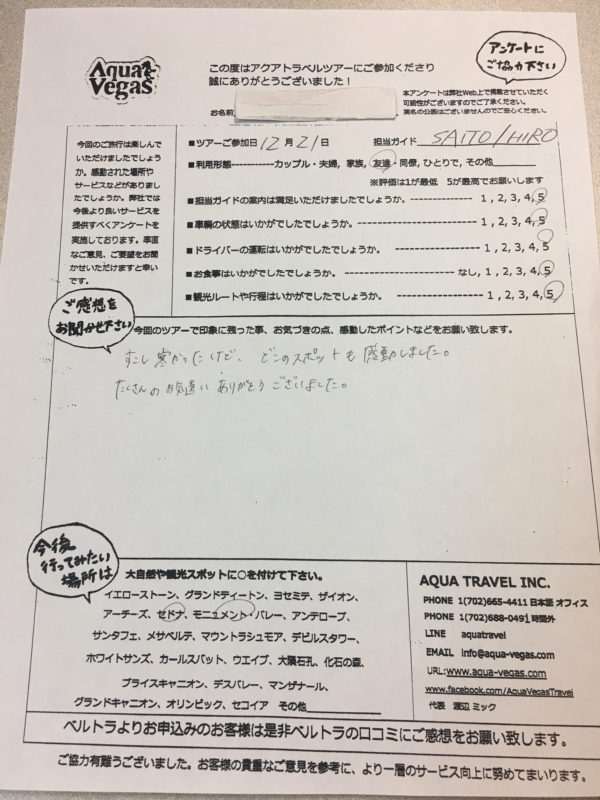 Aqua
Vegas
この度はアクアトラベルツアーにご参加くださり
誠にありがとうございました！
アンケートに
ご協力下さい
本アンケートは弊社Web上で掲載させていただく
可能性がございますのでご了承ください。
実名の公表はございませんのでご安心ください。
お名前
今回のご旅行は楽しんで
いただけましたでしょう
か。感動された場所や
サービスなどがありまし
たでしょうか。弊社では
今後より良いサービスを
提供すべくアンケートを
実施しております。率直
なご意見、ご要望をお聞
かせいただけますと幸い
です。
■ツアーご参加日 12 月 21 日 担当ガイド SAITO/HIRO
■利用形態-----------カップル・夫婦, 家族, 友達・同僚, ひとりで, その他
※評価は1が最低 5が最高でお願いします
■担当ガイドの案内は満足いただけましたでしょうか。 ---------- 1, 2, 3, 4, 5
■車輌の状態はいかがでしたでしょうか。 ---------- 1, 2, 3, 4, 5
■ドライバーの運転はいかがでしたでしょうか。 ---------- 1, 2, 3, 4, 5
■お食事はいかがでしたでしょうか。 ---------- なし, 1, 2, 3, 4, 5
■観光ルートや行程はいかがでしたでしょうか。 ---------- 1, 2, 3, 4, 5
ご感想を
お聞かせ下さい
今回のツアーで印象に残った事、お気づきの点、感動したポイントなどをお願い致します。
すこし寒かったけど、どこのスポットも感動しました。
たくさんのお気遣いありがとうございました。
今後
行ってみたい
場所は
大自然や観光スポットに○を付けて下さい。
イエローストーン、グランドティートン、ヨセミテ、ザイオン、
アーチーズ、セドナ、モニュメント・バレー、アンテロープ、
サンタフェ、メサベルテ、マウントラシュモア、デビルスタワー、
ホワイトサンズ、カールスバット、ウエイブ、大隕石孔、化石の森、
ブライスキャニオン、デスバレー、マンザナール、
グランドキャニオン、オリンピック、セコイア その他
AQUA TRAVEL INC.
PHONE 1(702)665-4411 日本語 オフィス
PHONE 1(702)688-0491 時間外
LINE aquatravel
EMAIL info@aqua-vegas.com
URL:www.aqua-vegas.com
www.facebook.com/AquaVegasTravel
代表 渡辺 ミック
ベルトラよりお申込みのお客様は是非ベルトラの口コミにご感想をお願い致します。
ご協力有難うございました。お客様の貴重なご意見を参考に、より一層のサービス向上に努めてまいります。